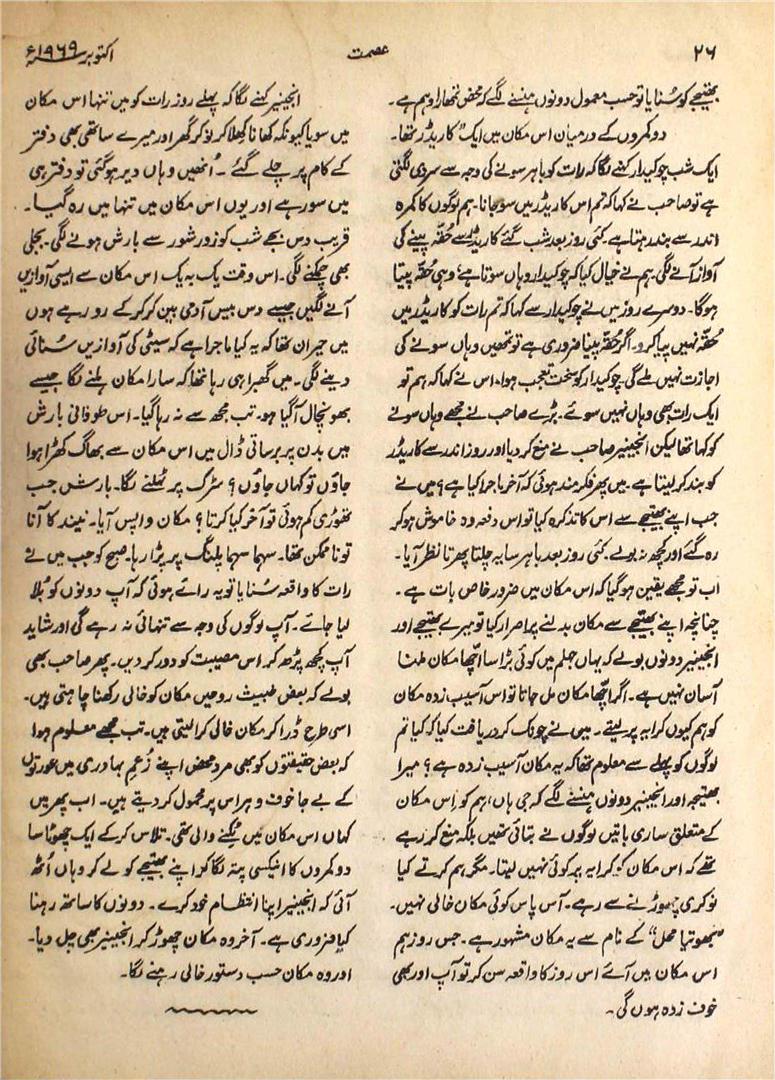 ۲۶
عصمت
اکتوبر ۱۹۶۹ء
بھتیجے کو سُنایا تو حسب معمول دونوں ہنسنے لگے کہ محض تمھارا وہم ہے۔
دو کمروں کے درمیان اس مکان میں ایک "کاریڈر تھا۔
ایک شب چوکیدار کہنے لگا کہ رات کو باہر سونے کی وجہ سے سردی لگتی
ہے تو صاحب نے کہا کہ تم اس کاریڈر میں سوجانا۔ ہم لوگوں کا کمرہ
اندر سے بند رہتا ہے۔ کئی روز بعد شب گئے کاریڈر سے حقّہ پینے کی
آواز آنے لگی۔ ہم نے خیال کیا کہ چوکیدار وہاں سوتا ہے وہی حُقّہ پیتا
ہوگا۔ دوسرے روز میں نے چوکیدار سے کہا کہ تم رات کو کاریڈر میں
حُقّہ نہیں پیا کرو۔ اگر حُقّہ پینا ضروری ہے تو تمھیں وہاں سونے کی
اجازت نہیں ملے گی۔ چوکیدار کو سخت تعجب ہوا۔ اس نے کہا کہ ہم تو
ایک رات بھی وہاں نہیں سوئے۔ بڑے صاحب نے مجھے وہاں سونے
کو کہا تھا لیکن انجینیر صاحب نے منع کردیا اور روز اندر سے کاریڈر
کو بند کرلیتا ہے۔ میں پھر فکرمند ہوئی کہ آخر ماجرا کیا ہے؟ میں نے
جب اپنے بھتیجے سے اس کا تذکرہ کیا تو اس دفعہ وہ خاموش ہوکر
رہ گئے اور کچھ نہ بولے۔ کئی روز بعد باہر سایہ چلتا پھرتا نظر آیا۔
اب تو مجھے یقین ہوگیا کہ اس مکان میں ضرور خاص بات ہے۔
چنانچہ اپنے بھتیجے سے مکان بدلنے پر اصرار کیا تو میرے بھتیجے اور
انجینیر دونوں بولے کہ یہاں جہلم میں کوئی بڑا سا اچھا مکان ملنا
آسان نہیں ہے۔ اگر اچھا مکان مل جاتا تو اس آسیب زدہ مکان
کو ہم کیوں کرایہ پر لیتے۔ میں نے چونک کر دریافت کیا کہ کیا تم
لوگوں کو پہلے سے معلوم تھا کہ یہ مکان آسیب زدہ ہے؟ میرا
بھتیجہ اور انجینیر دونوں ہنسنے لگے کہ جی ہاں، ہم کو اِس مکان
کے متعلق ساری باتیں لوگوں نے بتائی تھیں بلکہ منع کررہے
تھے کہ اس مکان کو کرایہ پر کوئی نہیں لیتا۔ مگر ہم کرتے کیا
نوکری چھوڑنے سے رہے۔ آس پاس کوئی مکان خالی نہیں۔
"بھوتیا محل" کے نام سے یہ مکان مشہور ہے۔ جس روز ہم
اس مکان میں آئے اس روز کا واقعہ سن کر تو آپ اور بھی
خوف زدہ ہوں گی۔
انجینیر کہنے لگا کہ پہلے روز رات کو میں تنہا اس مکان
میں سویا کیونکہ کھانا کھلا کر نوکر گھر اور میرے ساتھی بھی دفتر
کے کام پر چلے گئے۔ اُنھیں وہاں دیر ہوگئی تو دفتر ہی
میں سو رہے اور یوں اس مکان میں تنہا میں رہ گیا۔
قریب دس بجے شب کو زور شور سے بارش ہونے لگی۔ بجلی
بھی چمکنے لگی۔ اس وقت یک بہ یک اس مکان سے ایسی آوازیں
آنے لگیں جیسے دس بیس آدمی بین کرکرکے رو رہے ہوں
میں حیران تھا کہ یہ کیا ماجرا ہے کہ سیٹی کی آوازیں سُنائی
دینے لگی۔ میں گھبرا ہی رہا تھا کہ سارا مکان ہلنے لگا جیسے
بھونچال آگیا ہو۔ تب مجھ سے نہ رہا گیا۔ اس طوفانی بارش
میں بدن پر برساتی ڈال میں اس مکان سے بھاگ کھڑا ہوا
جاؤں تو کہاں جاؤں؟ سڑک پر ٹہلنے لگا۔ بارش جب
تھوڑی کم ہوئی تو آخر کیا کرتا؟ مکان واپس آیا۔ نیند کا آنا
تو ناممکن تھا۔ سہما سہما پلنگ پر پڑا رہا۔ صبح کو جب میں نے
رات کا واقعہ سُنایا تو یہ رائے ہوئی کہ آپ دونوں کو بُلا
لیا جائے۔ آپ لوگوں کی وجہ سے تنہائی نہ رہے گی اور شاید
آپ کچھ پڑھ کر اس مصیبت کو دور کردیں۔ پھر صاحب بھی
بولے کہ بعض خبیث روحیں مکان کو خالی رکھنا چاہتی ہیں۔
اسی طرح ڈرا کر مکان خالی کرالیتی ہیں۔ تب مجھے معلوم ہوا
کہ بعض حقیقتوں کو بھی مرد محض اپنے زُعمِ بہادری میں عورتوں
کے بے جا خوف و ہراس پر محمول کردیتے ہیں۔ اب پھر میں
کہاں اس مکان میں ٹکنے والی تھی۔ تلاس کرکے ایک چھوٹا سا
دو کمروں کا انیکسی پتہ لگا کر اپنے بھتیجے کو لے کر وہاں اُٹھ
آئی کہ انجینیر اپنا انتظام خود کرے۔ دونوں کا ساتھ رہنا
کیا ضروری ہے۔ آخر وہ مکان چھوڑ کر انجینیر بھی چل دیا۔
اور وہ مکان حسب دستور خالی رہنے لگا۔